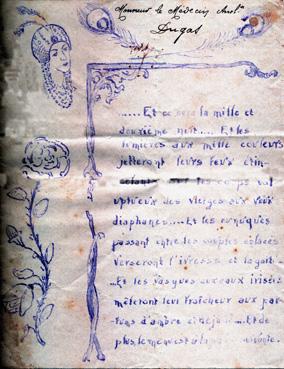 Monsieur le Médecin Aux.
Dugas
..... Et ce sera la mille et
deuxième nuit.... Et les
lumières aux mille couleurs
jetteront leurs feux étin-
celants sur les corps vol
uptueux des vierges aux yeux
diaphanes.... Et les eunuques
passant entre les
verseront l'ivresse et la gaîté
..Et les vasques aux eaux irisées
mêleront leur fraîcheur aux par-
fums d'ambre et ... Et de
plus